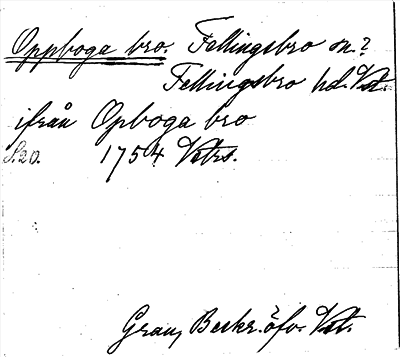 Oppboga bro. Fellingsbro sn.?
Fellingsbro hd. Vst.
ifrån Opboga bro
S. 20. 1754 Vstrs.
Grau, Beskr. öfv. Vst.